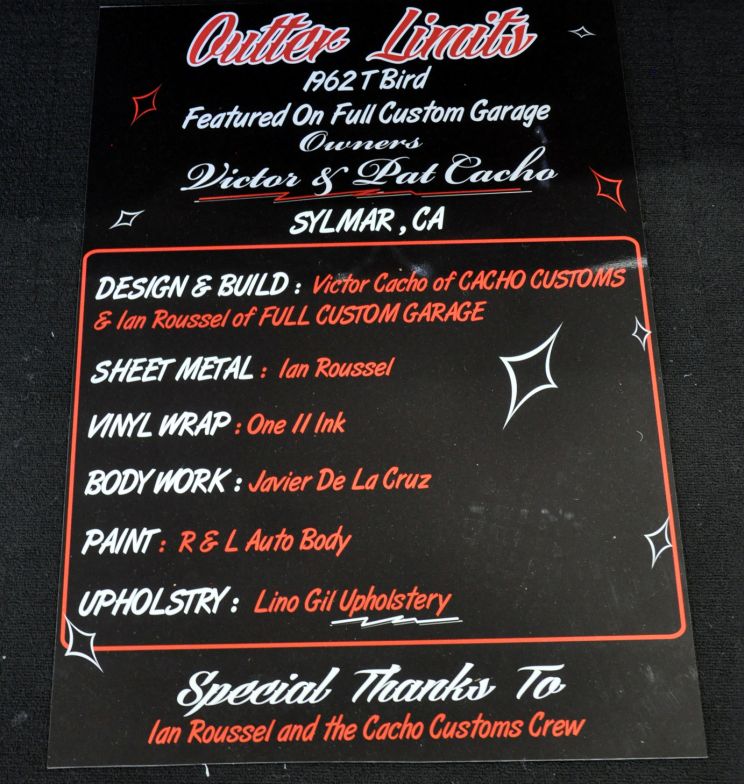 Outter Limits
1962 T Bird
Featured On Full Custom Garage
Owners
Victor & Pat Cacho
SYLMAR, CA
DESIGN & BUILD : Victor Cacho of CACHO CUSTOMS
& Ian Roussel of FULL CUSTOM GARAGE
SHEET METAL : Ian Roussel
VINYL WRAP : One 11 Ink
BODY WORK : Javier De La Cruz
PAINT : R & L Auto Body
UPHOLSTRY : Lino Gil Upholstery
Special Thanks To
Ian Roussel and the Cacho Customs Crew